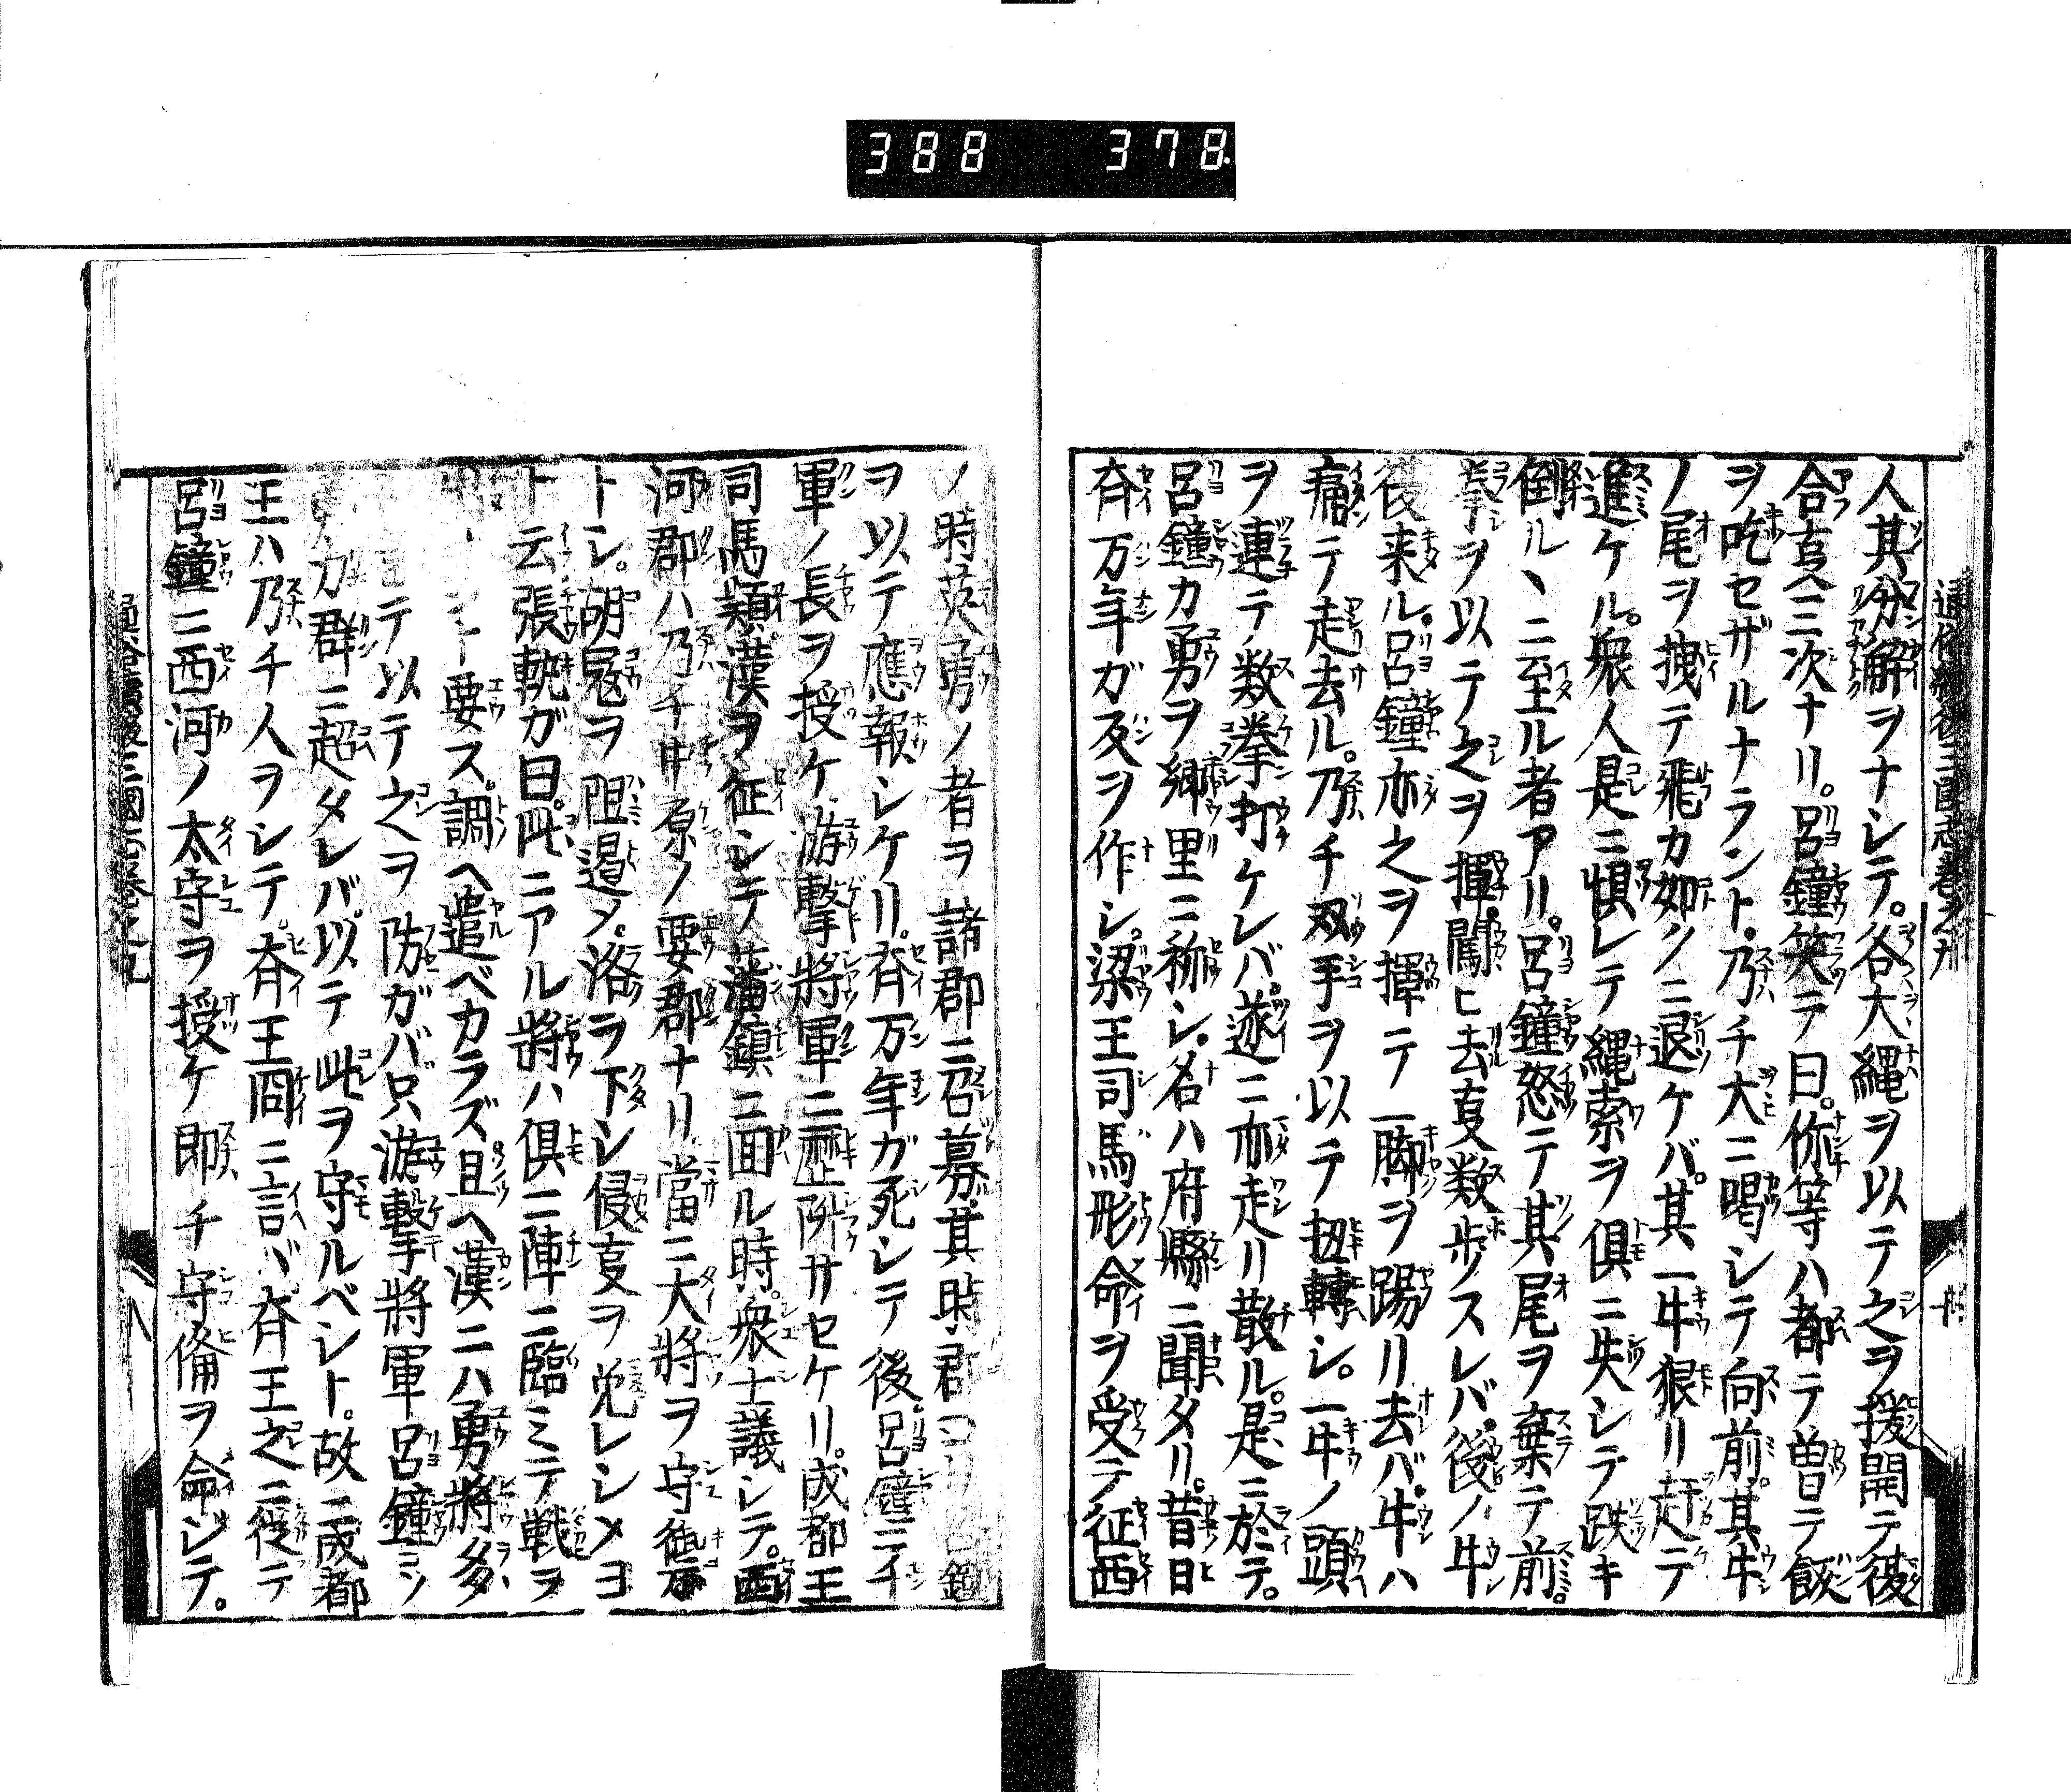 388 378
人其分解ヲナシテ。各大縄ヲ以テ之ヲ援開テ後
合亥三次ナリ。呂鐘笑テ曰。伱等ハ都テ曽テ飯
ヲ吃セザルナラント。乃チ大ニ喝シテ向前。其牛
ノ尾ヲ拽テ飛カ如ノニ退ケバ。其一牛狠リ赶テ
進ケル。衆人是ニ惧レテ縄索ヲ俱ニ失シテ跌キ
倒ル丶ニ至ル者アリ。呂鐘怒テ其尾ヲ棄テ前。
拳ヲ以テ之ヲ揮闘ヒ去亥数步スレバ。後ノ牛
後来ル。呂鐘亦之ヲ揮テ一脚ヲ踢リ去バ。牛ハ
痛テ走去ル。乃チ双手ヲ以テ扭轉シ。一牛ノ頭
ヲ連テ数拳打ケレバ。遂ニ亦走リ散ル。是ニ於テ。
呂鐘カ勇ヲ郷里ニ称シ。名ハ府縣ニ聞タリ。昔日
斉万年ガ反ヲ作シ。梁王司馬形命ヲ受テ征西
ノ時英勇ノ者ヲ諸郡ニ召募。其時郡
ヲ以テ應報シケリ。斉万年ガ死シテ後。呂鐘ニ
軍ノ長ヲ授ケ游撃將軍ニ歴陞サセケリ。成都王
司馬頴漢ヲ征シテ藩鎮ニ回ル時。衆士議シテ。西
河郡ハ乃チ中原ノ要郡ナリ當ニ大將ヲ守衛
トシ。胡冦ヲ阻遏ノ。洛ヲ下シ侵亥ヲ免レシメヨ
ト云張軏ガ曰。此ニアル將ハ俱ニ陣ニ臨ミテ戦ヲ
要ス。調ヘ遣ベカラズ。且ヘ漢ニハ勇將多
テ以テ之ヲ防ガバ只游擊將軍呂鐘ミソ
力群ニ超メレバ。以テ此ヲ守ルベシト。故ニ成都
王ハ乃チ人ヲシテ。斉王冏ニ言バ斉王之ニ從テ
呂鐘ニ西河ノ太守ヲ授ケ即チ守備ヲ命ジテ。